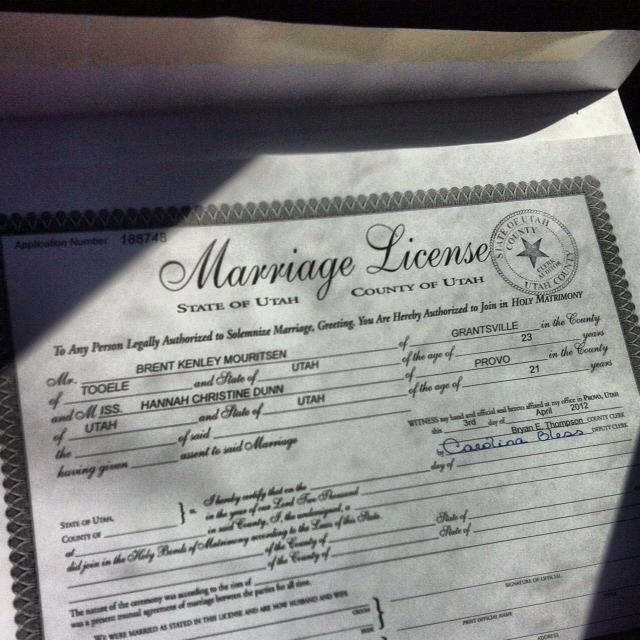 Application Number 188748
Marriage License
STATE OF UTAH COUNTY OF UTAH
STATE OF UTAH COUNTY UTAH COUNTY
To Any Person Legally Authorized to Solemnize Marriage, Greeting, You Are Hereby Authorized to Join in HOLY MATRIMONY
Mr. BRENT KENLEY MOURITSEN of GRANTSVILLE in the County
of TOOELE and State of UTAH of the age of 23 years
and MISS. HANNAH CHRISTINE DUNN of PROVO in the County
of UTAH and State of UTAH of the age of 21 years
the of said
having given assent to said Marriage
WITNESS my hand and official seal hereto affixed at my office in PROVO, UTAH
this 3rd day of April 2012
Bryan E. Thompson COUNTY CLERK
By Carolina Bless DEPUTY CLERK
STATE OF UTAH, } ss. I hereby certify that on the day of
COUNTY OF in the year of our Lord Two Thousand
at in said County, I, the undersigned, a
did join in the Holy Bonds of Matrimony according to the Laws of this State.
of the County of State of
of the County of State of
The nature of the ceremony was according to the rites of
was a present mutual agreement of marriage between the parties for all time.
WE WERE MARRIED AS STATED IN THIS LICENSE AND ARE NOW HUSBAND AND WIFE
GROOM
SIGNATURE OF OFFICIAL
PRINT OFFICIAL NAME
ADDRESS